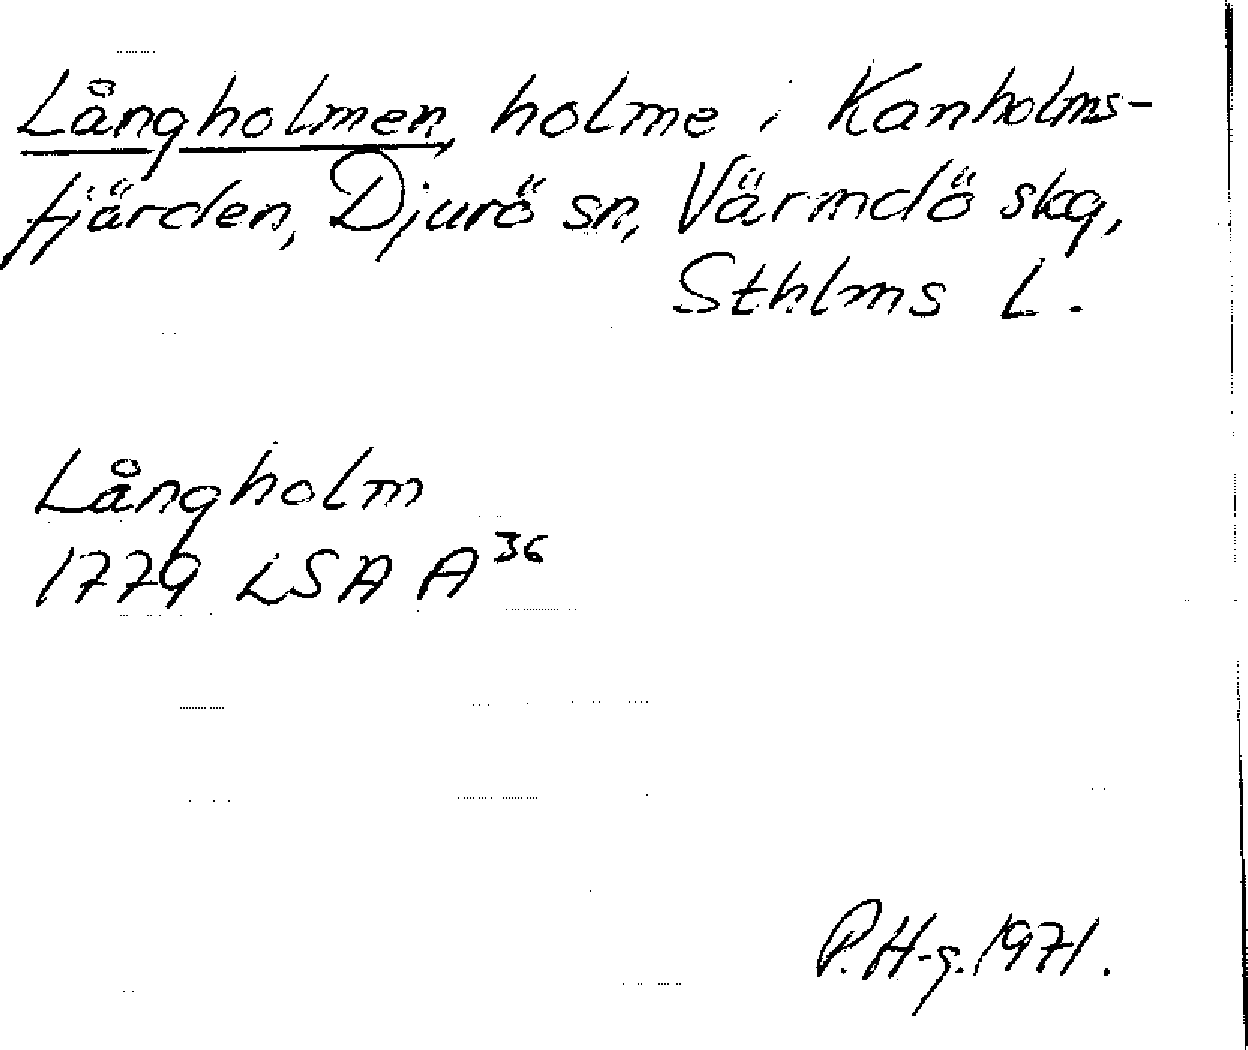 Långholmen, holme i Kanholms-
fjärden, Djurö sn, Värmdö skg,
Sthlms L.
Långholm
1779 LSA A³⁶
P.H-g. 1971.